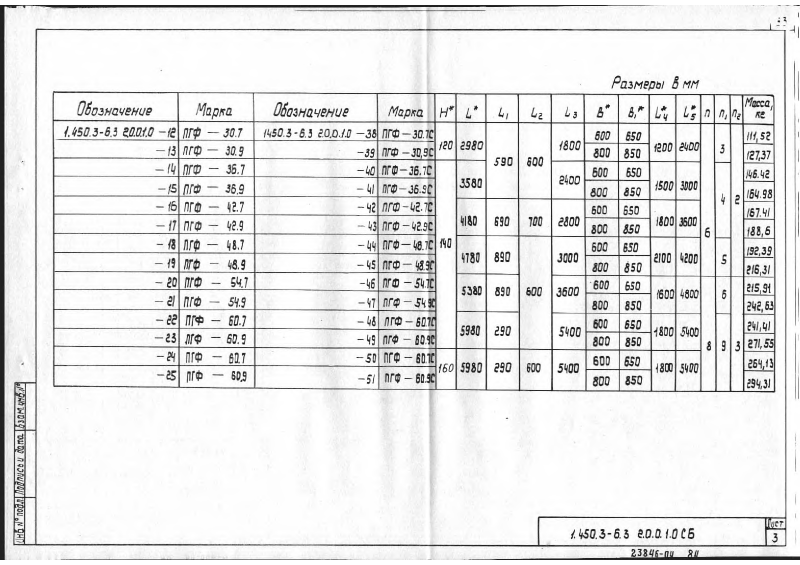 Размеры в мм
Обозначение Марка Обозначение Марка H* L* L1 L2 L3 B* B1* L4* L5* n n1 n2 Масса, кг
1.450.3-6.3 2.0.0.1.0 -12 ПГФ — 30.7 1.450.3-6.3 2.0.0.1.0 -38 ПГФ-30.7С 120 2980 590 600 1800 600 650 1200 2400 6 3 2 111,52
-13 ПГФ — 30.9 -39 ПГФ-30,9С 800 850 127,37
-14 ПГФ — 36.7 -40 ПГФ-36.7С 140 3580 2400 600 650 1500 3000 4 146.42
-15 ПГФ — 36.9 -41 ПГФ-36.9С 800 850 164.98
-16 ПГФ — 42.7 -42 ПГФ-42.7С 4180 690 700 2800 600 650 1800 3600 167.41
-17 ПГФ — 42.9 -43 ПГФ-42.9С 800 850 188,6
-18 ПГФ — 48.7 -44 ПГФ-48.7С 4780 890 600 3000 600 650 2100 4200 5 192,39
-19 ПГФ — 48.9 -45 ПГФ-48.9С 800 850 216,31
-20 ПГФ — 54.7 -46 ПГФ-54.7С 5380 890 3600 600 650 1600 4800 8 6 3 215,91
-21 ПГФ — 54.9 -47 ПГФ-54.9С 800 850 242,63
-22 ПГФ — 60.7 -48 ПГФ-60.7С 5980 290 5400 600 650 1800 5400 9 241,41
-23 ПГФ — 60.9 -49 ПГФ-60.9С 800 850 271,55
-24 ПГФ — 60.7 -50 ПГФ-60.7С 160 5980 290 600 5400 600 650 1800 5400 264,13
-25 ПГФ — 60,9 -51 ПГФ-60.9С 800 850 294,31
ИНВ.№ подл. Подпись и дата Взам.инв.№
1.450.3-6.3 2.0.0.1.0 СБ
Лист
3
23846-04